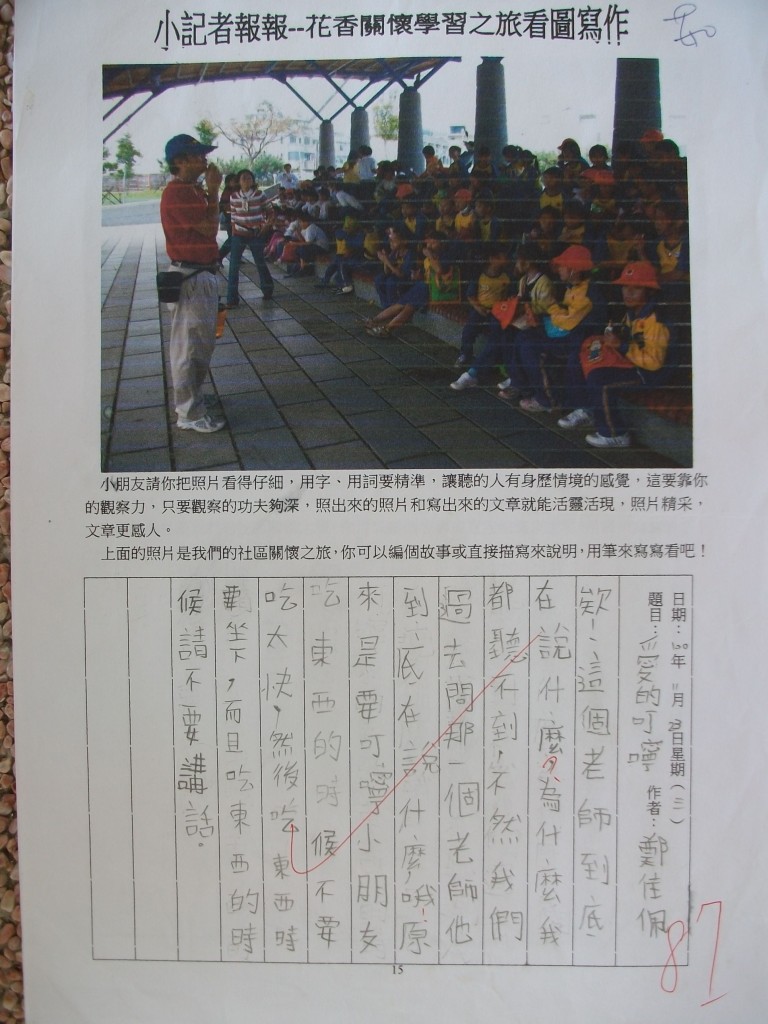 小記者報報--花香關懷學習之旅看圖寫作
小朋友請你把照片看得仔細，用字、用詞要精準，讓聽的人有身歷情境的感覺，這要靠你
的觀察力，只要觀察的功夫夠深，照出來的照片和寫出來的文章就能活靈活現，照片精采，
文章更感人。
上面的照片是我們的社區關懷之旅，你可以編個故事或直接描寫來說明，用筆來寫寫看吧！
日期：年11月日星期（三）
題目：愛的叮嚀 作者：鄭佳佩
欸！這個老師到底
在說什麼？為什麼我
都聽不到，不然我們
過去問那一個老師他
到底在說什麼，哦！原
來是要叮嚀小朋友
吃東西的時候不要
吃太快，然後吃東西時
要坐下，而且吃東西的時
候請不要講話。
87
15